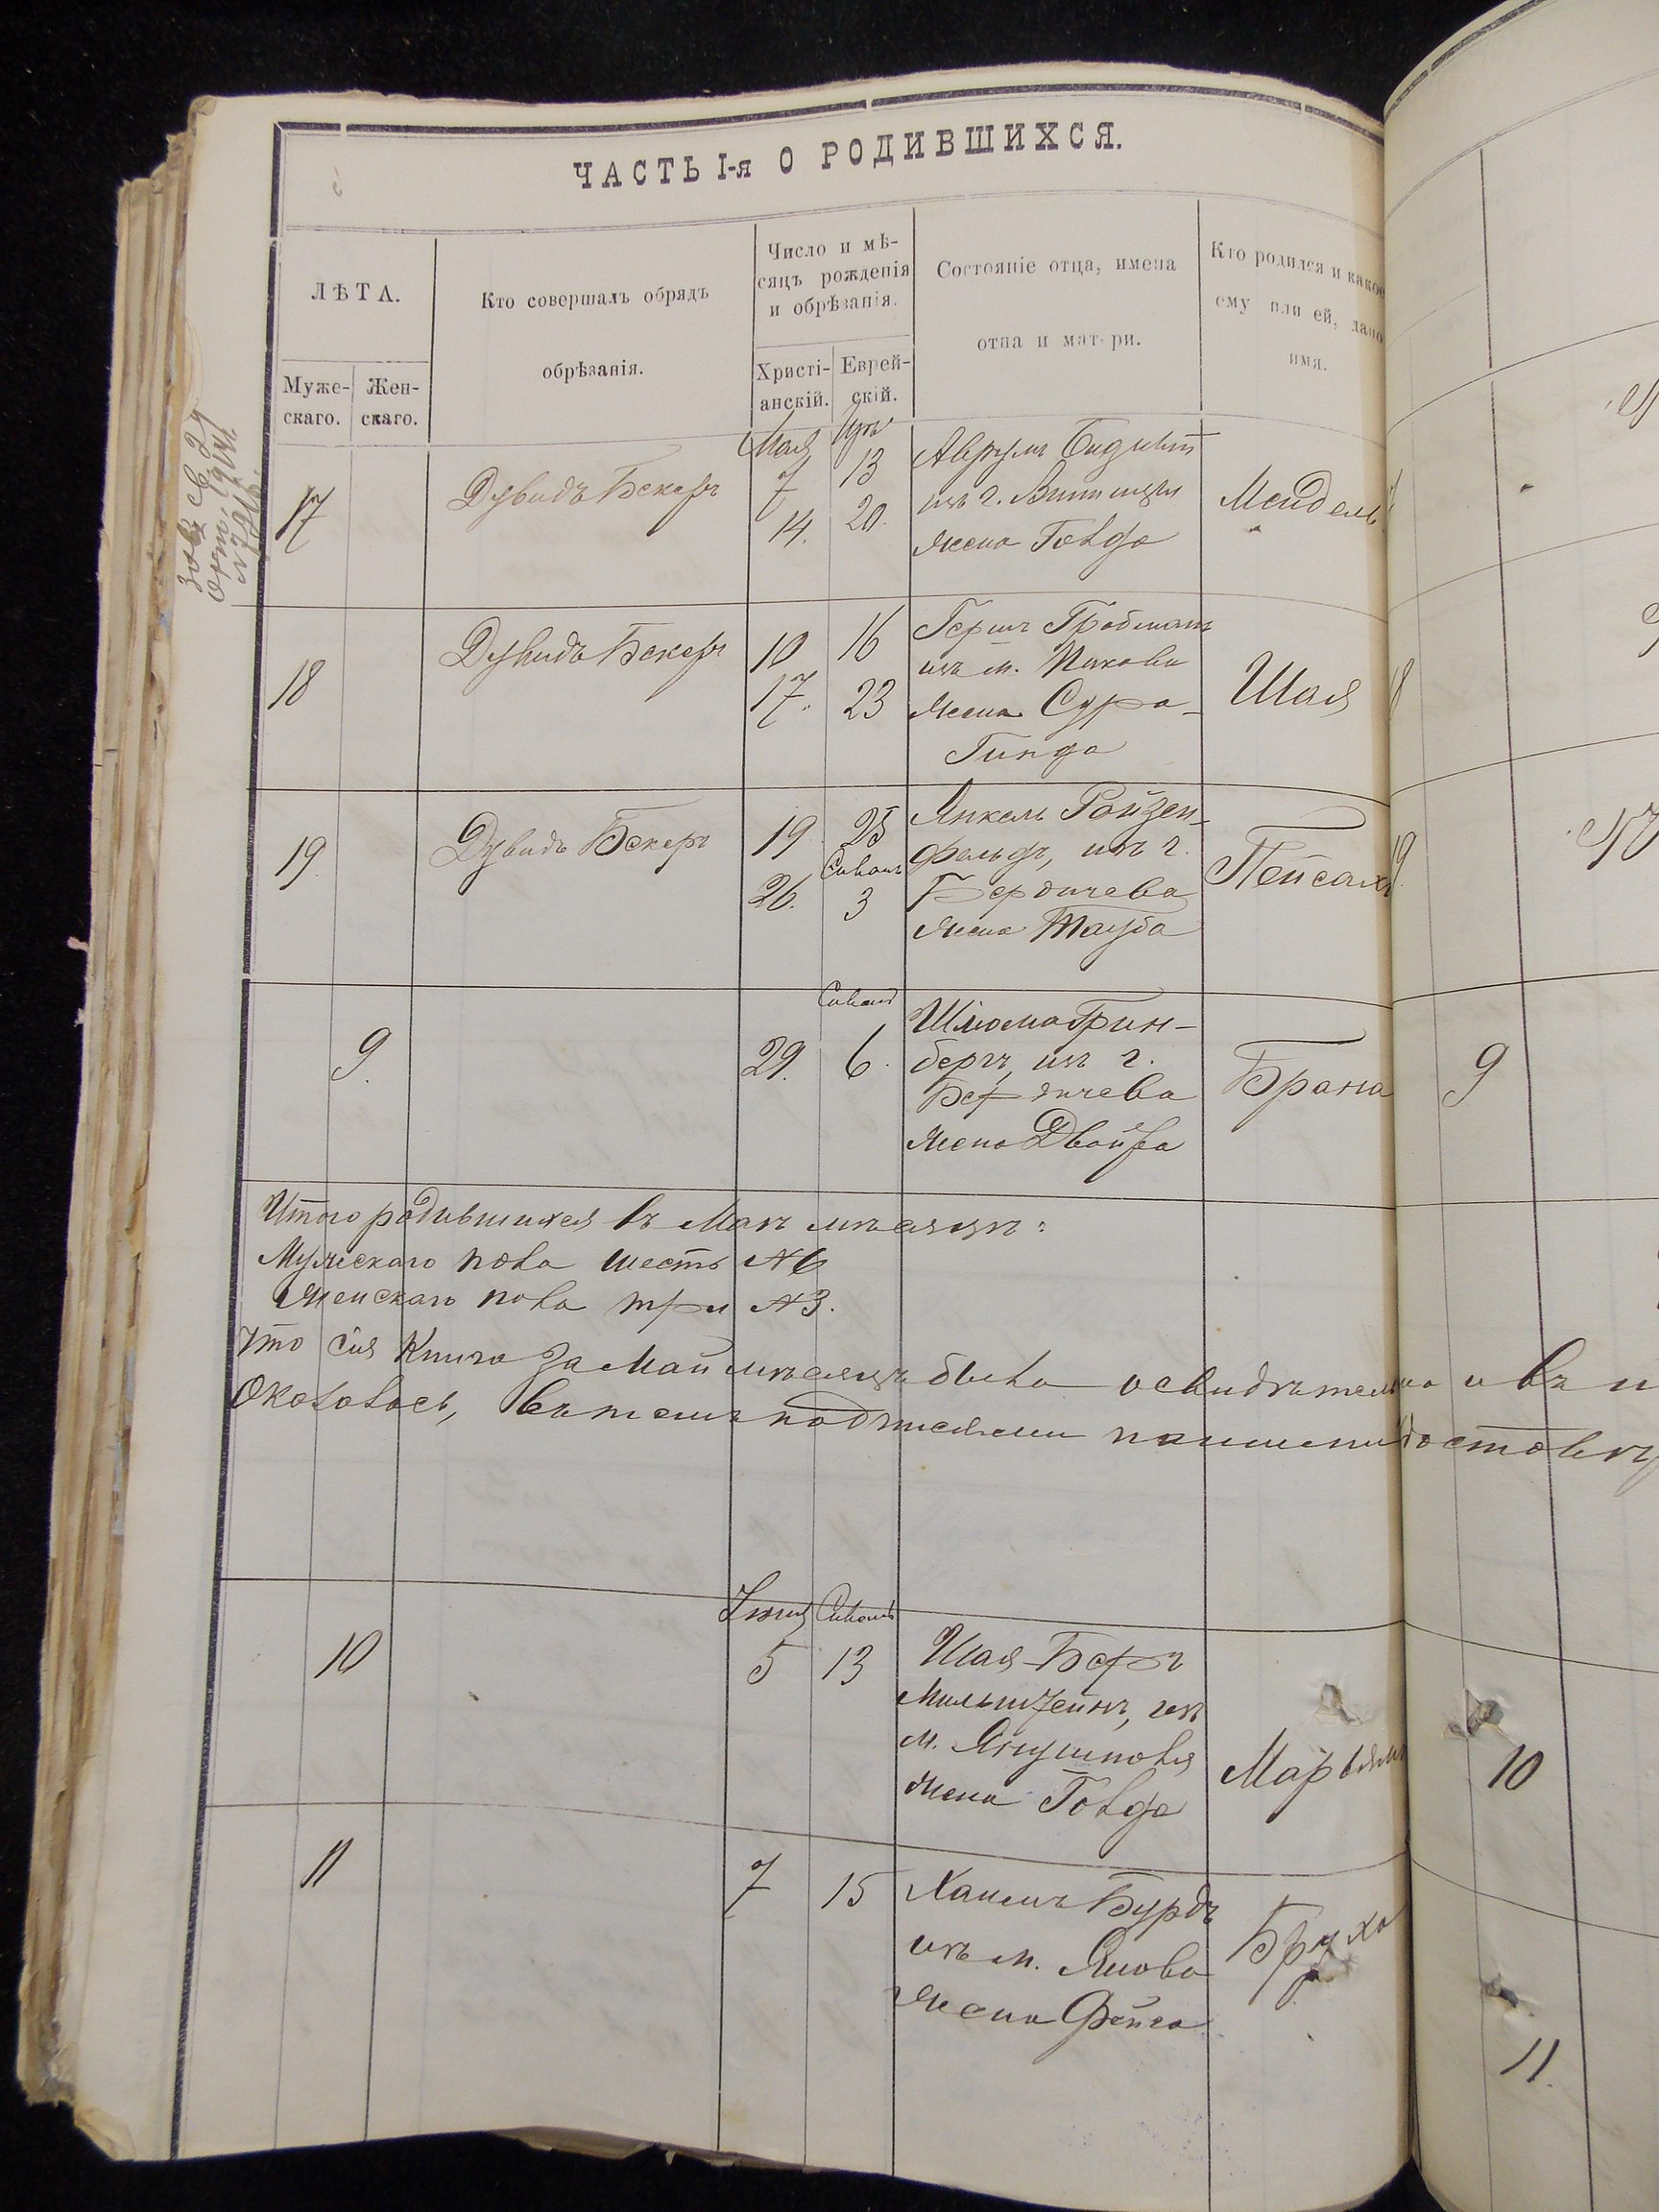 ЧАСТЬ I-я О РОДИВШИХСЯ.
ЛѢТА.
Муже-
скаго.
Жен-
скаго.
Кто совершалъ обрядъ
обрѣзанія.
Число и мѣ-
сяцъ рожденія
и обрѣзанія.
Христі-
анскій.
Еврей-
скій.
Состояніе отца, имена
отца и матери.
Кто родился и какое
ему или ей, дано
имя.
17
Дувидъ Бекеръ
Мая
7
14.
Іръ
13
20.
Аврумъ
изъ г. Винницы
жена Голда
Мендель
18
Дувидъ Бекеръ
10
17.
16
23
Гершъ Гройсманъ
изъ м. Пикова
жена Сура-
Гинда
Шая
18
19
Дувидъ Бекеръ
19
26.
25
Сивонъ
3
Янкель Ройзен-
фельдъ, изъ г.
Бердичева
жена Тауба
Пейсахъ
19
9.
29.
Сивонъ
6.
Шлиома Грин-
бергъ, изъ г.
Бердичева
жена Двойра
Брана
9
Итого родившихся въ Маѣ мѣсяцѣ:
Мужескаго пола шесть №6
Женскаго пола три №3.
Что сія Книга за Май мѣсяцъ была освидѣтельно и въ и
Оказалась, въ томъ подписями
10
Іюня
5
Сивонъ
13
Шая-Беръ
Мильштейнъ, изъ
м. Янушполя
жена Голда
Марьямъ
10
11
7
15
Хаимъ Бурдъ
изъ м. Янова
жена Фейга
Бруха
11.